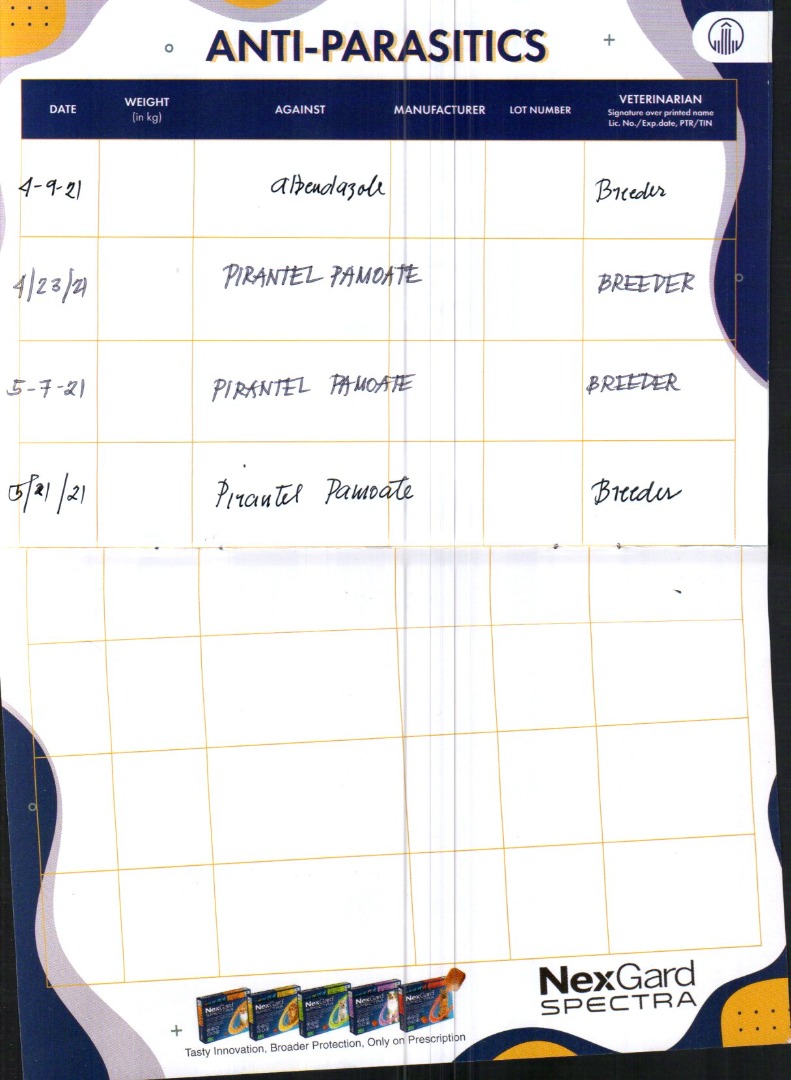 ANTI-PARASITICS
DATE WEIGHT (in kg) AGAINST MANUFACTURER LOT NUMBER VETERINARIAN
Signature over printed name
Lic. No./Exp.date, PTR/TIN
4-9-21 albendazole Breeder
4/23/21 PIRANTEL PAMOATE BREEDER
5-7-21 PIRANTEL PAMOATE BREEDER
5/21/21 Pirantel Pamoate Breeder
NexGard
SPECTRA
NexGard NexGard NexGard NexGard NexGard
Tasty Innovation, Broader Protection, Only on Prescription